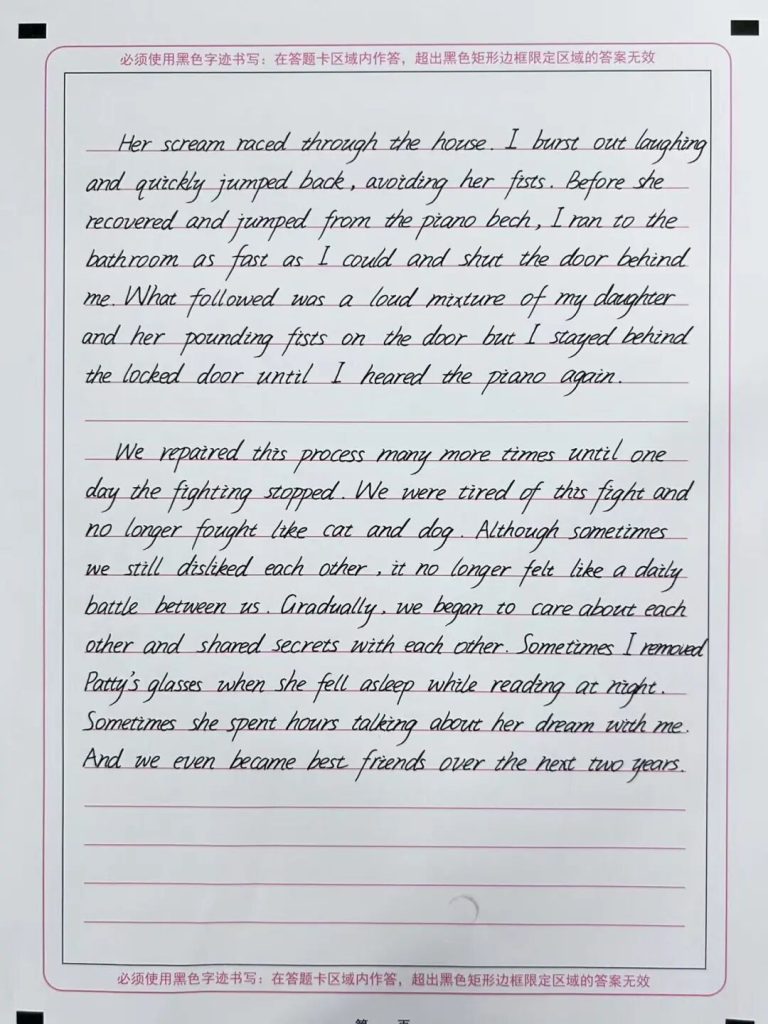 必须使用黑色字迹书写：在答题卡区域内作答，超出黑色矩形边框限定区域的答案无效
Her scream raced through the house. I burst out laughing
and quickly jumped back, avoiding her fists. Before she
recovered and jumped from the piano bech, I ran to the
bathroom as fast as I could and shut the door behind
me. What followed was a loud mixture of my daughter
and her pounding fists on the door but I stayed behind
the locked door until I heared the piano again.
We repaired this process many more times until one
day the fighting stopped. We were tired of this fight and
no longer fought like cat and dog. Although sometimes
we still disliked each other, it no longer felt like a daily
battle between us. Gradually, we began to care about each
other and shared secrets with each other. Sometimes I removed
Patty's glasses when she fell asleep while reading at night.
Sometimes she spent hours talking about her dream with me.
And we even became best friends over the next two years.
必须使用黑色字迹书写：在答题卡区域内作答，超出黑色矩形边框限定区域的答案无效